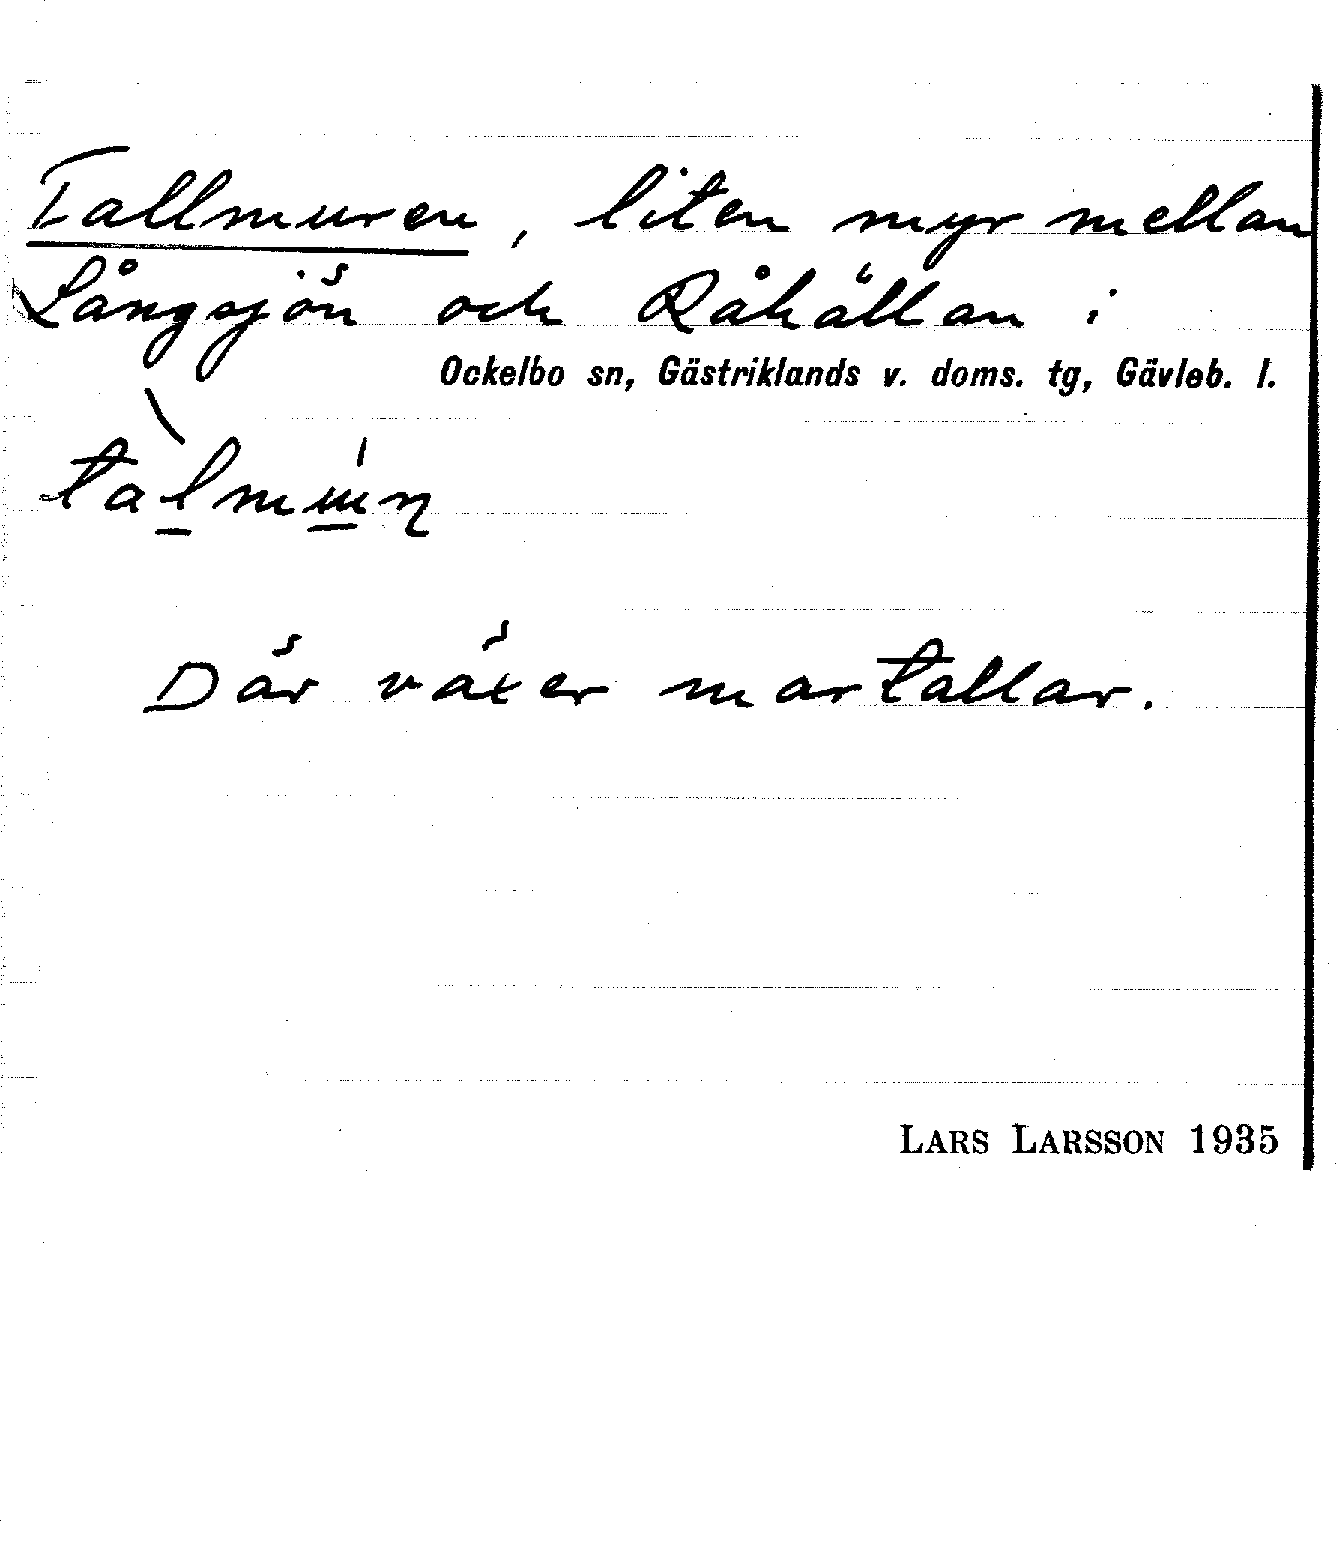 Tallmuren, liten myr mellan
Långsjön och Råhällan i
Ockelbo sn, Gästriklands v. doms. tg, Gävleb. l.
tàlmúɳ
Där växer martallar.
LARS LARSSON 1935